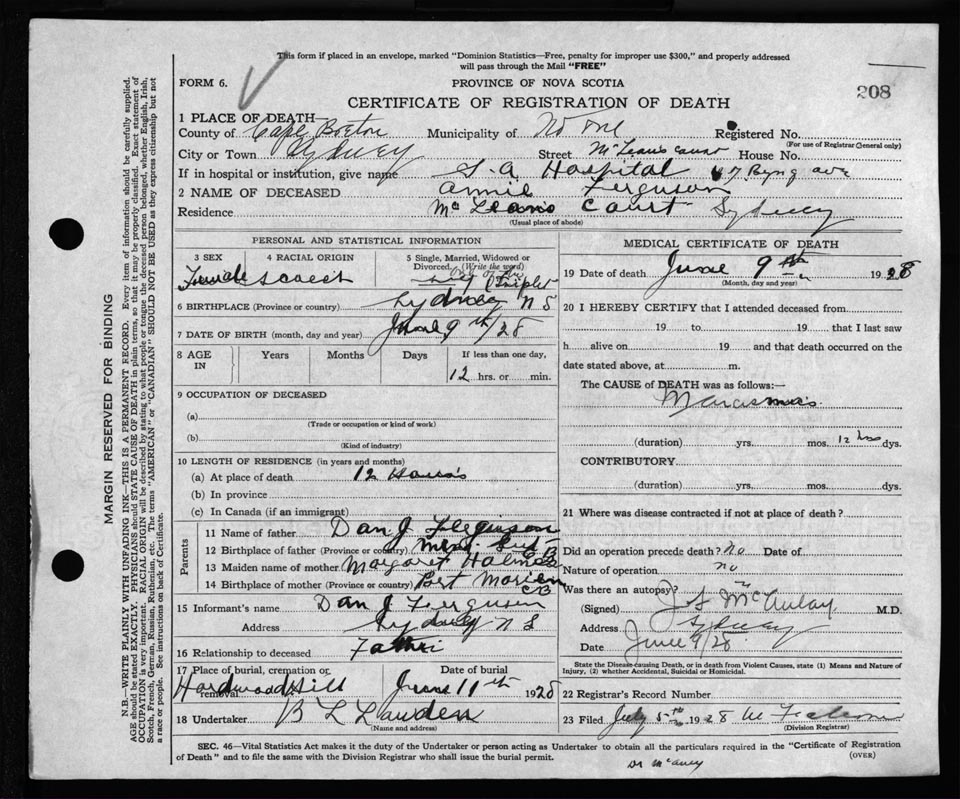 This form if placed in an envelope, marked "Dominion Statistics—Free, penalty for improper use $300," and properly addressed
will pass through the Mail "FREE"
FORM 6.
PROVINCE OF NOVA SCOTIA
208
CERTIFICATE OF REGISTRATION OF DEATH
1 PLACE OF DEATH—
County of Cape Breton Municipality of No one Registered No.
(For use of Registrar General only)
City or Town Sydney Street McLeans Court House No.
If in hospital or institution, give name S.A. Hospital 67 Byng ave
2 NAME OF DECEASED Annie Ferguson
Residence McLeans Court Sydney
(Usual place of abode)
PERSONAL AND STATISTICAL INFORMATION
3 SEX 4 RACIAL ORIGIN 5 Single, Married, Widowed or Divorced (Write the word)
Female Scotch Triplet
6 BIRTHPLACE (Province or country) Sydney N S
7 DATE OF BIRTH (month, day and year) June 9th/28
8 AGE IN Years Months Days If less than one day,
12 hrs. or min.
9 OCCUPATION OF DECEASED
(a)
(Trade or occupation or kind of work)
(b)
(Kind of industry)
10 LENGTH OF RESIDENCE (in years and months)
(a) At place of death 12 Hours
(b) In province
(c) In Canada (if an immigrant)
Parents
11 Name of father Dan J Ferguson
12 Birthplace of father (Province or country) C B
13 Maiden name of mother Margaret Holmes
14 Birthplace of mother (Province or country) Port Morien CB
15 Informant's name Dan J. Ferguson
Address Sydney N S
16 Relationship to deceased Father
17 Place of burial, cremation or removal Date of burial
Hardwood Hill June 11th 1928
18 Undertaker B L Lawden
(Name and address)
MEDICAL CERTIFICATE OF DEATH
19 Date of death June 9th 1928
(Month, day and year)
20 I HEREBY CERTIFY that I attended deceased from
19 to 19 that I last saw
h alive on 19 and that death occurred on the
date stated above, at m.
The CAUSE of DEATH was as follows:—
Marasmus
(duration) yrs. mos. 12 hrs dys.
CONTRIBUTORY
(duration) yrs. mos. dys.
21 Where was disease contracted if not at place of death?
Did an operation precede death? no Date of
Nature of operation no
Was there an autopsy?
(Signed) McAulay M.D.
Address Sydney
Date June 9/28
State the Disease causing Death, or in death from Violent Causes, state (1) Means and Nature of
Injury, (2) whether Accidental, Suicidal or Homicidal.
22 Registrar's Record Number
23 Filed July 5th 1928
(Division Registrar)
SEC. 46—Vital Statistics Act makes it the duty of the Undertaker or person acting as Undertaker to obtain all the particulars required in the "Certificate of Registration
of Death" and to file the same with the Division Registrar who shall issue the burial permit.
(OVER)
MARGIN RESERVED FOR BINDING
N.B.—WRITE PLAINLY WITH UNFADING INK—THIS IS A PERMANENT RECORD. Every item of information should be carefully supplied.
AGE should be stated EXACTLY. PHYSICIANS should STATE CAUSE OF DEATH in plain terms, so that it may be properly classified. Exact statement of
OCCUPATION is very important. RACIAL ORIGIN will be described by stating to what people or tongue the deceased person belonged, whether English, Irish,
Scotch, French, German, Russian, Ruthenian, etc. The terms "AMERICAN" or "CANADIAN" SHOULD NOT BE USED as they express citizenship but not
a race or people. See instructions on back of Certificate.